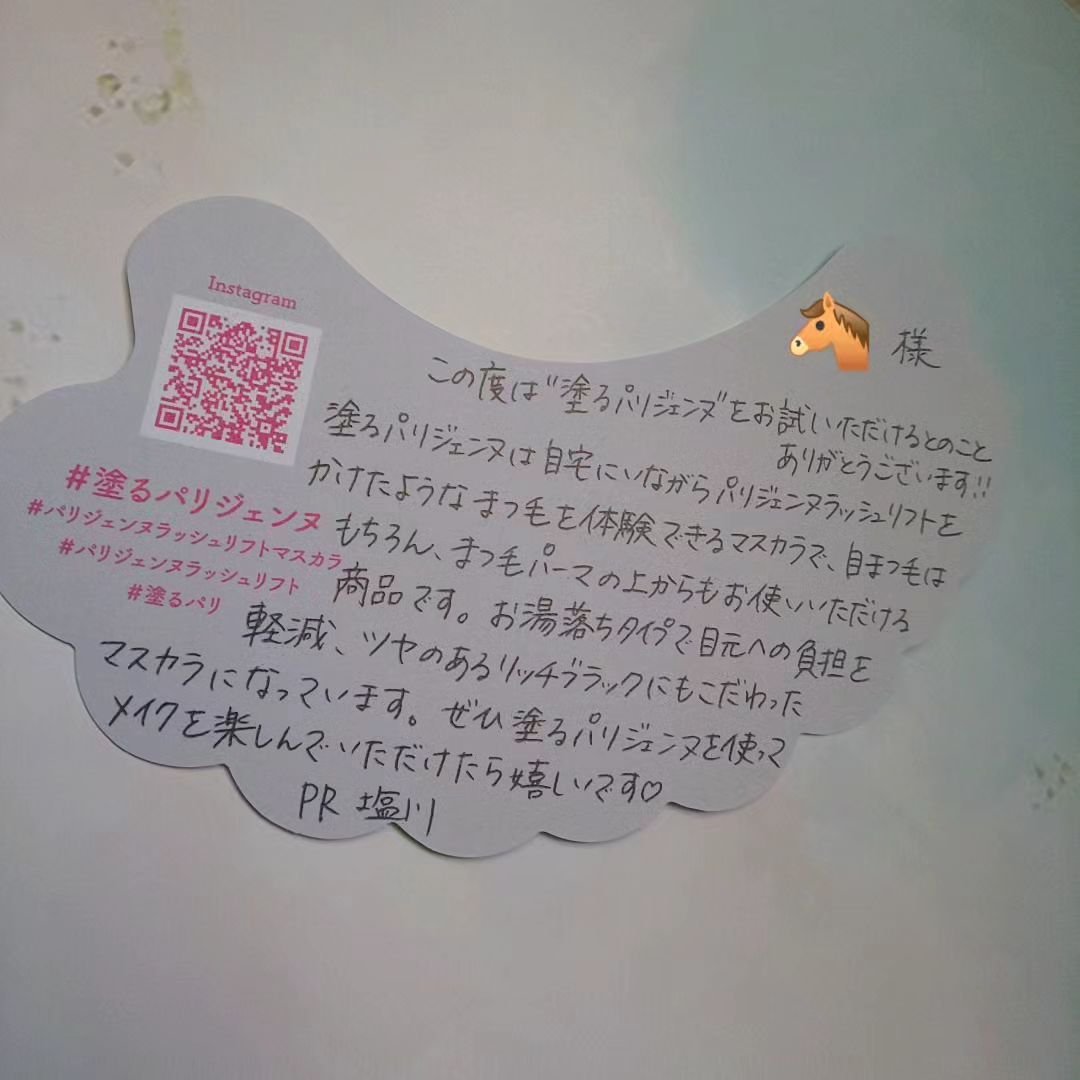 Instagram
#塗るパリジェンヌ
#パリジェンヌラッシュリフトマスカラ
#パリジェンヌラッシュリフト
#塗るパリ
様
この度は“塗るパリジェンヌ”をお試しいただけるとのこと
ありがとうございます!!
塗るパリジェンヌは自宅にいながらパリジェンヌラッシュリフトを
かけたようなまつ毛を体験できるマスカラで、自まつ毛は
もちろん、まつ毛パーマの上からもお使いいただける
商品です。お湯落ちタイプで目元への負担を
軽減、ツヤのあるリッチブラックにもこだわった
マスカラになっています。ぜひ塗るパリジェンヌを使って
メイクを楽しんでいただけたら嬉しいです♡
PR 塩川